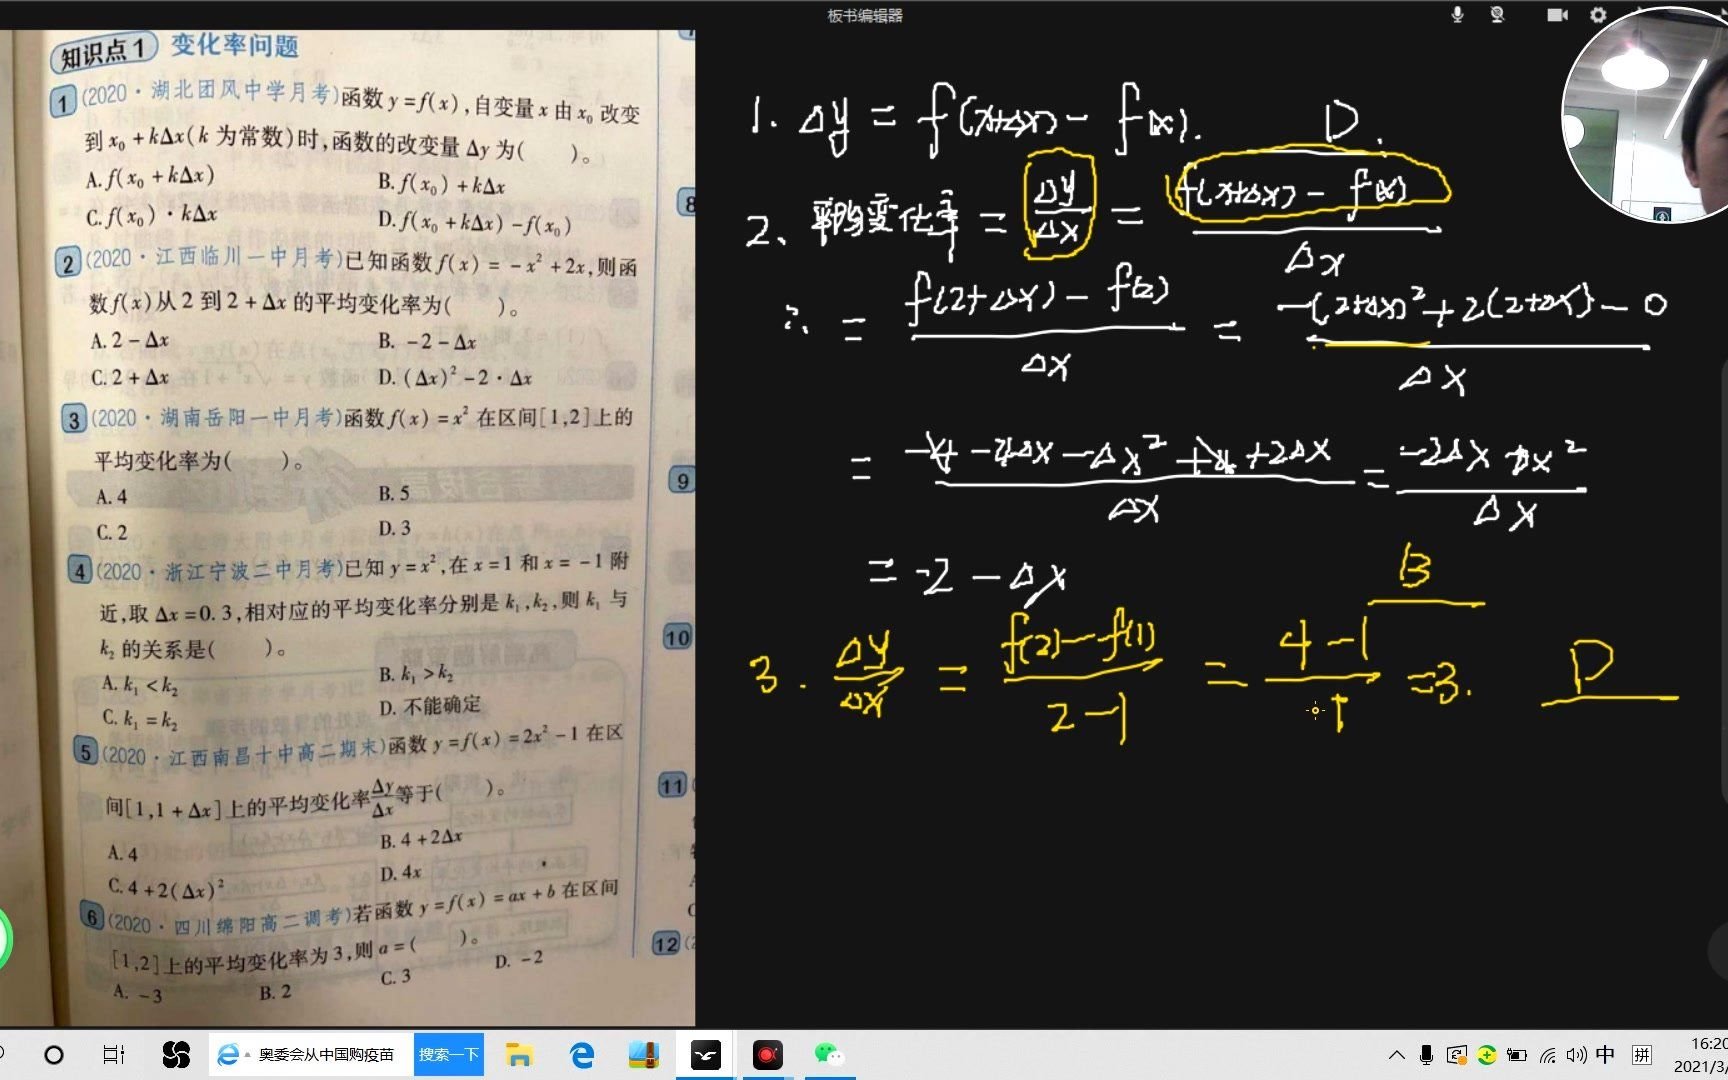 板书编辑器
知识点1 变化率问题
1 (2020·湖北团风中学月考)函数y=f(x),自变量x由x₀改变
到x₀+kΔx(k为常数)时,函数的改变量Δy为(  )。
A.f(x₀+kΔx)  B.f(x₀)+kΔx
C.f(x₀)·kΔx  D.f(x₀+kΔx)-f(x₀)
2 (2020·江西临川一中月考)已知函数f(x)=-x²+2x,则函
数f(x)从2到2+Δx的平均变化率为(  )。
A.2-Δx  B.-2-Δx
C.2+Δx  D.(Δx)²-2·Δx
3 (2020·湖南岳阳一中月考)函数f(x)=x²在区间[1,2]上的
平均变化率为(  )。
A.4  B.5
C.2  D.3
4 (2020·浙江宁波二中月考)已知y=x²,在x=1和x=-1附
近,取Δx=0.3,相对应的平均变化率分别是k₁,k₂,则k₁与
k₂的关系是(  )。
A.k₁<k₂  B.k₁>k₂
C.k₁=k₂  D.不能确定
5 (2020·江西南昌十中高二期末)函数y=f(x)=2x²-1在区
间[1,1+Δx]上的平均变化率Δy/Δx等于(  )。
A.4  B.4+2Δx
C.4+2(Δx)²  D.4x
6 (2020·四川绵阳高二调考)若函数y=f(x)=ax+b在区间
[1,2]上的平均变化率为3,则a=(  )。
A.-3  B.2  C.3  D.-2
8
9
10
11
12
1. Δy = f(x+Δx) - f(x).  D.
2、平均变化率 = Δy/Δx = f(x+Δx) - f(x) / Δx
∴ = f(2+Δx) - f(2) / Δx = -(2+Δx)²+2(2+Δx)-0 / Δx
= -4-4Δx-Δx²+4+2Δx / Δx = -2Δx-Δx² / Δx
= -2-Δx  B
3. Δy/Δx = f(2)-f(1) / 2-1 = 4-1 / 1 =3.  D
奥委会从中国购疫苗 搜索一下
中 拼
16:20
2021/3/